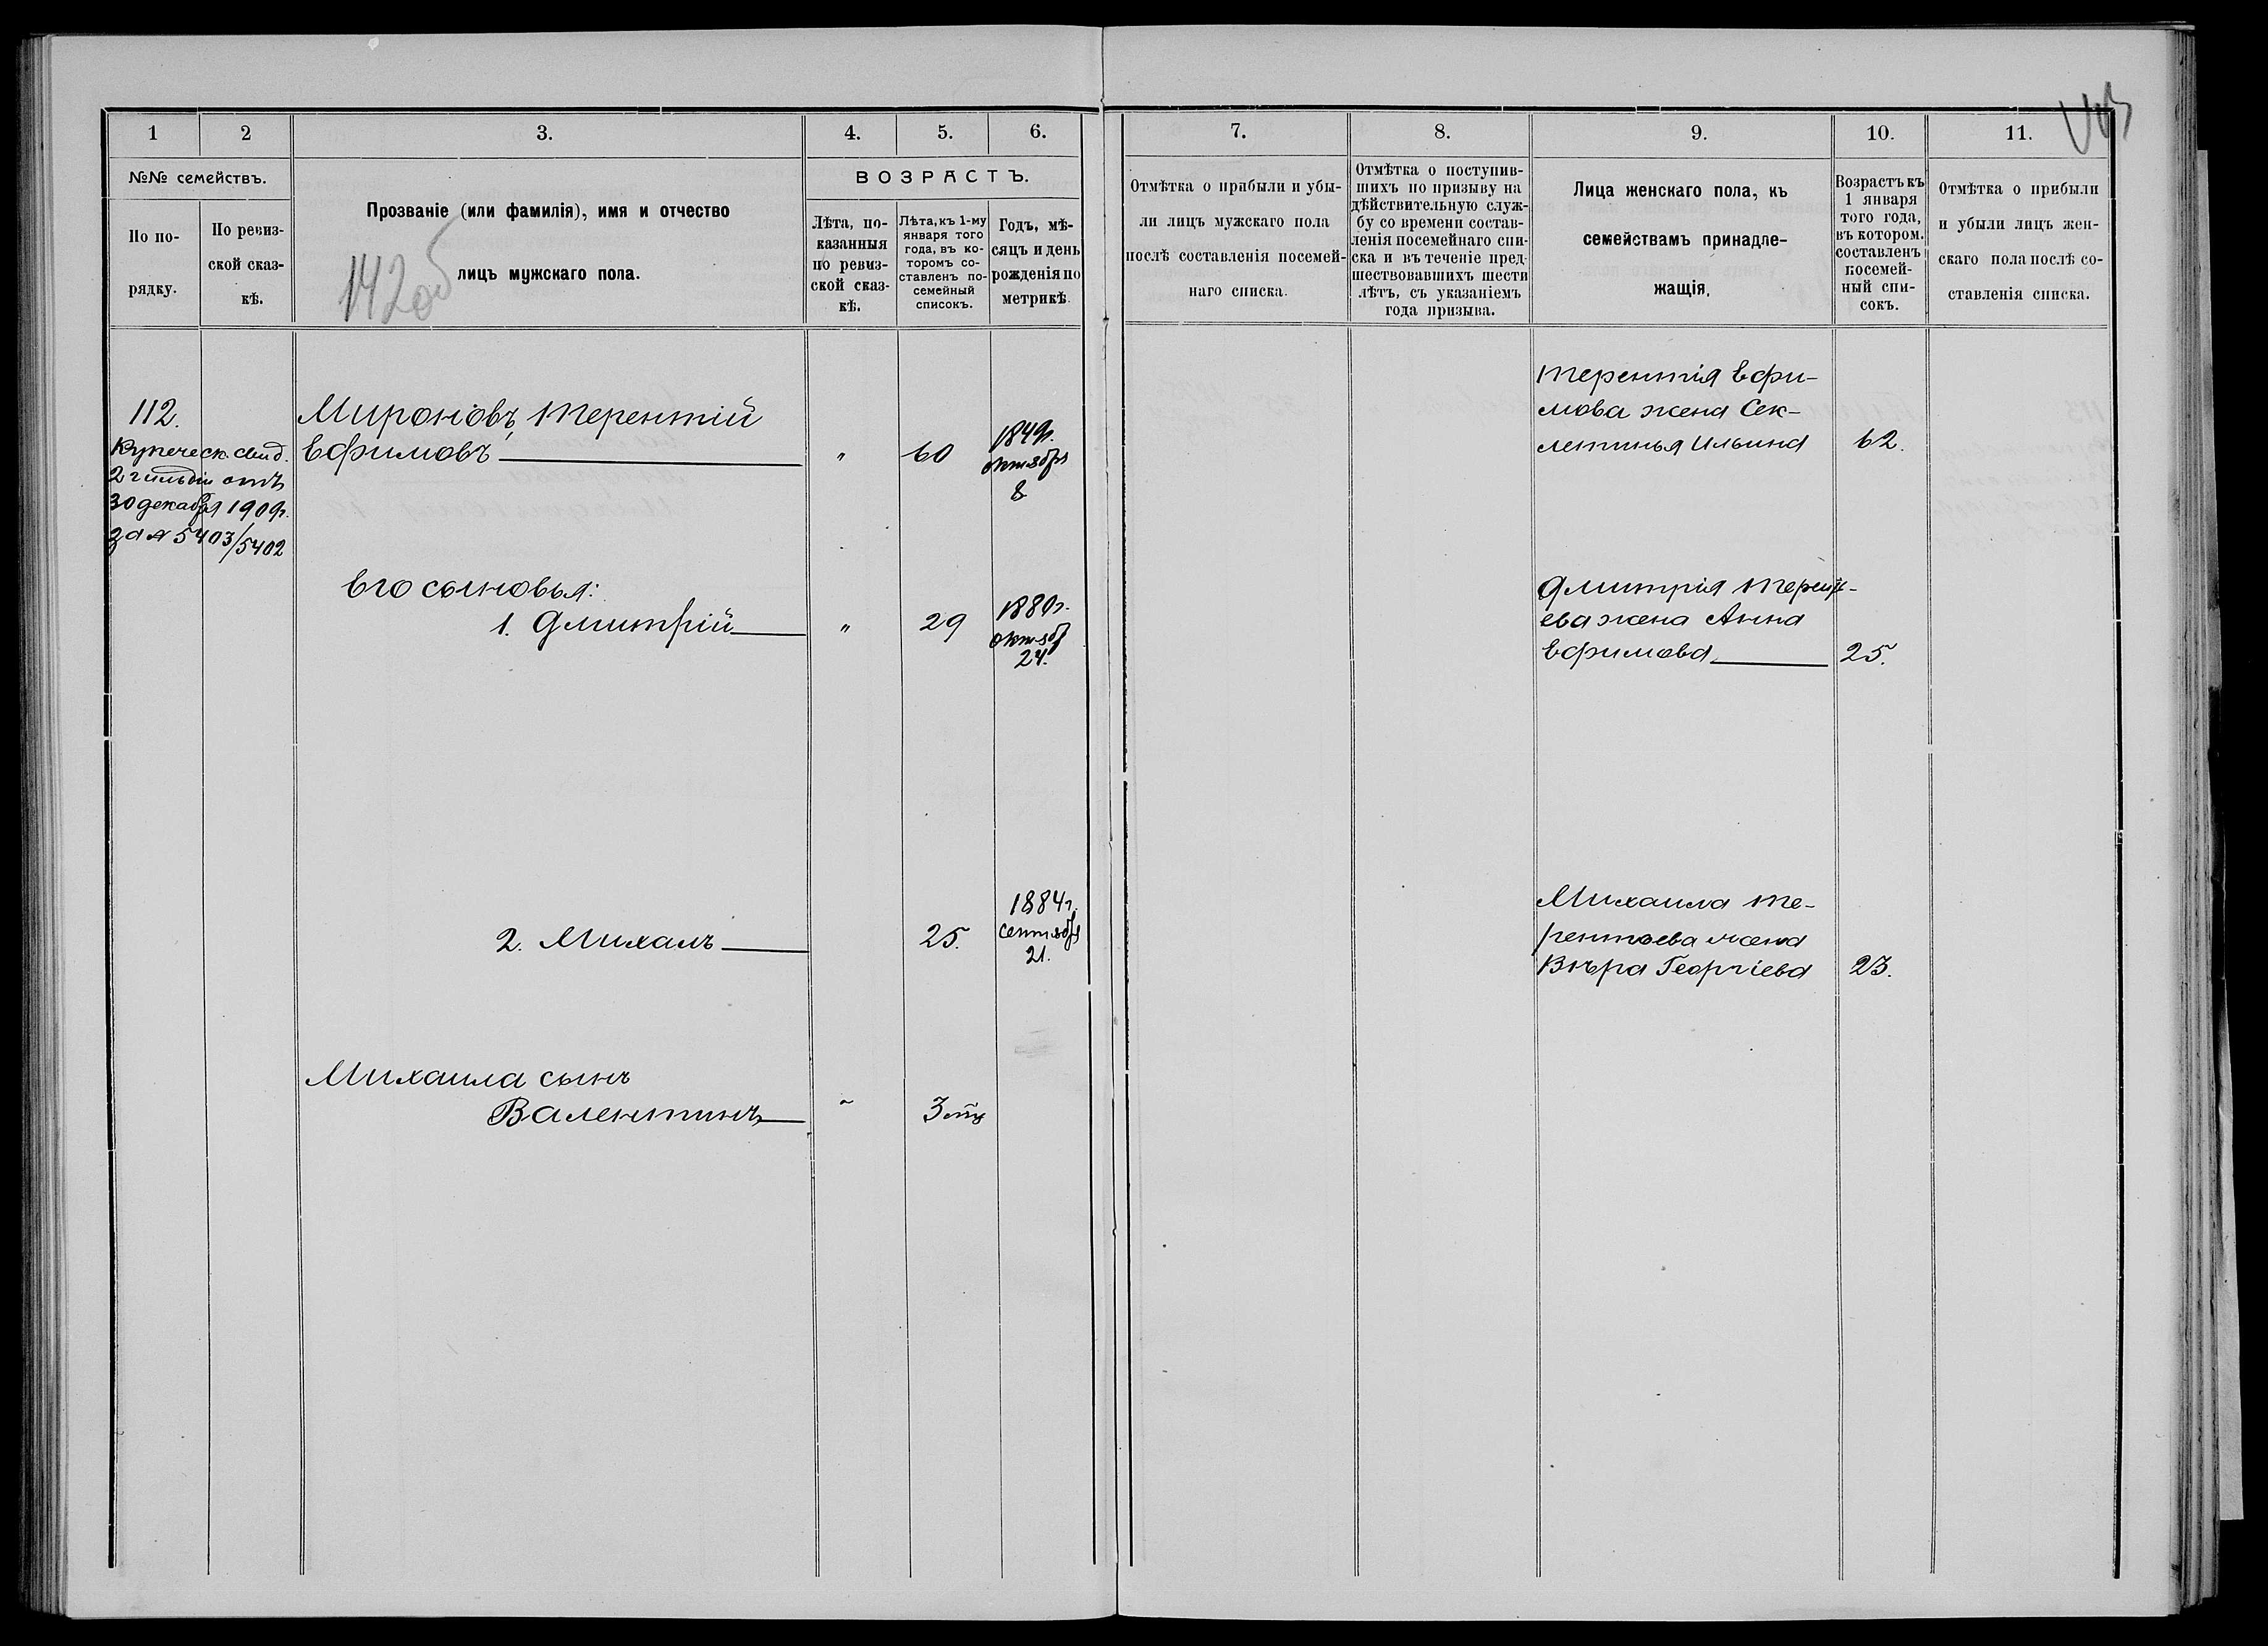 1
2
3.
4.
5.
6.
№№ семействъ.
По по-
рядку.
По ревиз-
ской сказ-
кѣ.
Прозваніе (или фамилія), имя и отчество
лицъ мужскаго пола.
142об
ВОЗРАСТЪ.
Лѣта, по-
казанныя
по ревиз-
ской сказ-
кѣ.
Лѣта, къ 1-му
января того
года, въ ко-
торомъ со-
ставленъ по-
семейный
списокъ.
Годъ, мѣ-
сяцъ и день
рожденія по
метрикѣ
112.
Купеческ. свид.
2 гильдіи отъ
30 декабря 1909г.
за № 5403/5402
Мироновъ, Терентій
Ефимовъ
"
60
1849г.
октября
8
Его сыновья:
1. Дмитрій
"
29
1880г.
октябр
24.
2. Михаилъ
25.
1884г.
сентября
21.
Михаила сынъ
Валентинъ
"
3
7.
8.
9.
10.
11.
Отмѣтка о прибыли и убы-
ли лицъ мужскаго пола
послѣ составленія посемей-
наго списка.
Отмѣтка о поступив-
шихъ по призыву на
дѣйствительную служ-
бу со времени состав-
ленія посемейнаго спи-
ска и въ теченіе пред-
шествовавшихъ шести
лѣтъ, съ указаніемъ
года призыва.
Лица женскаго пола, къ
семействамъ принадле-
жащія.
Возрастъ къ
1 января
того года,
въ котором.
составленъ
посемей-
ный спи-
сокъ.
Отмѣтка о прибыли
и убыли лицъ жен-
скаго пола послѣ со-
ставленія списка.
Терентія Ефи-
мова жена Сек-
летинья Ильина
62.
Дмитрія Терент-
ева жена Анна
Ефимова
25.
Михаила Те-
рентьева жена
Вѣра Георгіева
23.